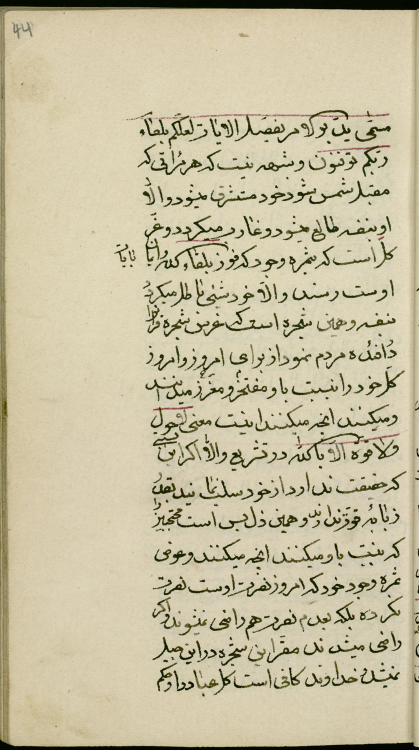 44
مسمی یدبر الامر یفصل الایات لعلکم بلقاء
ربکم توقنون و شبهه نیست که هر مرآتی که
مقبل شمس شود خود متشرق میشود والا
او بنفسه طالع میشود و غارب میگردد و عز
کل است که ثمره وجود که فوز بلقاء الله و ایا
بایات
اوست رسند والا خود شئی ناطق میگردد
بنفسه و همین شجره است که غرس شجره قرآنرا
در افئده مردم نمود از برای امروز و امروز
کل خود را نسبت باو مفتخر و معزز میدانند
و میکنند انچه میکنند اینست معنی لا حول
ولا قوة الا بالله در تشریع والا اگر این نسبتی
که حقیقت ندارد از خود سلب نمایند بقدر
ذبابه قوة ندارند و همین دلیل بس است محتجبین را
که نسبت باو میکنند انچه میکنند و عوض
ثمره وجود خود که امروز نصرت اوست نصرت
نکرده بلکه بعدم نصرت هم راضی نمیشوند و اگر
راضی میشدند مقر این شجره در این جبل
نمیشد و خداوند کافی است کل عباد را و حکم